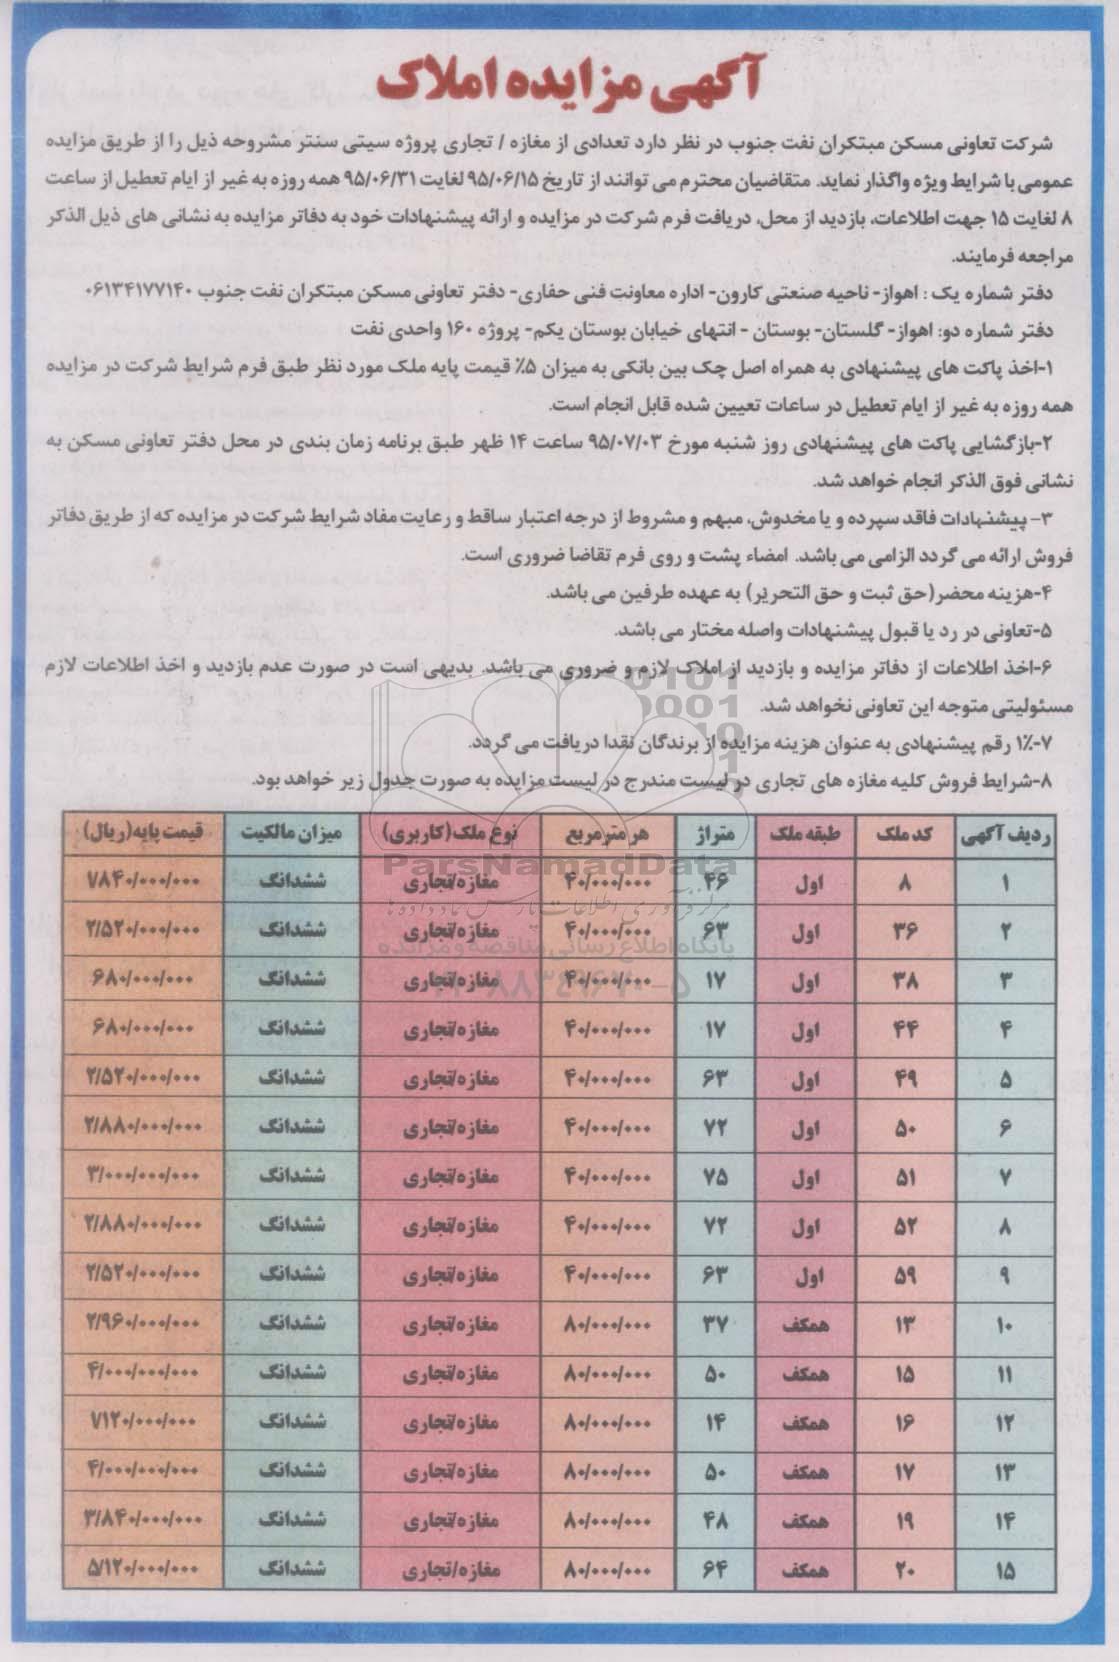 آگهی مزایده املاک
شرکت تعاونی مسکن مبتکران نفت جنوب در نظر دارد تعدادی از مغازه / تجاری پروژه سیتی سنتر مشروحه ذیل را از طریق مزایده
عمومی با شرایط ویژه واگذار نماید. متقاضیان محترم می توانند از تاریخ ۹۵/۰۶/۱۵ لغایت ۹۵/۰۶/۳۱ همه روزه به غیر از ایام تعطیل از ساعت
۸ لغایت ۱۵ جهت اطلاعات، بازدید از محل، دریافت فرم شرکت در مزایده و ارائه پیشنهادات خود به دفاتر مزایده به نشانی های ذیل الذکر
مراجعه فرمایند.
دفتر شماره یک : اهواز- ناحیه صنعتی کارون- اداره معاونت فنی حفاری- دفتر تعاونی مسکن مبتکران نفت جنوب ۰۶۱۳۴۱۷۷۱۴۰
دفتر شماره دو: اهواز- گلستان- بوستان - انتهای خیابان بوستان یکم- پروژه ۱۶۰ واحدی نفت
۱-اخذ پاکت های پیشنهادی به همراه اصل چک بین بانکی به میزان ۵٪ قیمت پایه ملک مورد نظر طبق فرم شرایط شرکت در مزایده
همه روزه به غیر از ایام تعطیل در ساعات تعیین شده قابل انجام است.
۲-بازگشایی پاکت های پیشنهادی روز شنبه مورخ ۹۵/۰۷/۰۳ ساعت ۱۴ ظهر طبق برنامه زمان بندی در محل دفتر تعاونی مسکن به
نشانی فوق الذکر انجام خواهد شد.
۳- پیشنهادات فاقد سپرده و یا مخدوش، مبهم و مشروط از درجه اعتبار ساقط و رعایت مفاد شرایط شرکت در مزایده که از طریق دفاتر
فروش ارائه می گردد الزامی می باشد. امضاء پشت و روی فرم تقاضا ضروری است.
۴-هزینه محضر(حق ثبت و حق التحریر) به عهده طرفین می باشد.
۵-تعاونی در رد یا قبول پیشنهادات واصله مختار می باشد.
۶-اخذ اطلاعات از دفاتر مزایده و بازدید از املاک لازم و ضروری می باشد. بدیهی است در صورت عدم بازدید و اخذ اطلاعات لازم
مسئولیتی متوجه این تعاونی نخواهد شد.
۷-۱٪ رقم پیشنهادی به عنوان هزینه مزایده از برندگان نقدا دریافت می گردد.
۸-شرایط فروش کلیه مغازه های تجاری در لیست مندرج در لیست مزایده به صورت جدول زیر خواهد بود.
ردیف آگهی کد ملک طبقه ملک متراژ هر مترمربع نوع ملک(کاربری) میزان مالکیت قیمت پایه(ریال)
۱ ۸ اول ۴۶ ۴۰/۰۰۰/۰۰۰ مغازه/تجاری ششدانگ ۷۸۴۰/۰۰۰/۰۰۰
۲ ۳۶ اول ۶۳ ۴۰/۰۰۰/۰۰۰ مغازه/تجاری ششدانگ ۲/۵۲۰/۰۰۰/۰۰۰
۳ ۳۸ اول ۱۷ ۴۰/۰۰۰/۰۰۰ مغازه/تجاری ششدانگ ۶۸۰/۰۰۰/۰۰۰
۴ ۴۴ اول ۱۷ ۴۰/۰۰۰/۰۰۰ مغازه/تجاری ششدانگ ۶۸۰/۰۰۰/۰۰۰
۵ ۴۹ اول ۶۳ ۴۰/۰۰۰/۰۰۰ مغازه/تجاری ششدانگ ۲/۵۲۰/۰۰۰/۰۰۰
۶ ۵۰ اول ۷۲ ۴۰/۰۰۰/۰۰۰ مغازه/تجاری ششدانگ ۲/۸۸۰/۰۰۰/۰۰۰
۷ ۵۱ اول ۷۵ ۴۰/۰۰۰/۰۰۰ مغازه/تجاری ششدانگ ۳/۰۰۰/۰۰۰/۰۰۰
۸ ۵۲ اول ۷۲ ۴۰/۰۰۰/۰۰۰ مغازه/تجاری ششدانگ ۲/۸۸۰/۰۰۰/۰۰۰
۹ ۵۹ اول ۶۳ ۴۰/۰۰۰/۰۰۰ مغازه/تجاری ششدانگ ۲/۵۲۰/۰۰۰/۰۰۰
۱۰ ۱۳ همکف ۳۷ ۸۰/۰۰۰/۰۰۰ مغازه/تجاری ششدانگ ۲/۹۶۰/۰۰۰/۰۰۰
۱۱ ۱۵ همکف ۵۰ ۸۰/۰۰۰/۰۰۰ مغازه/تجاری ششدانگ ۴/۰۰۰/۰۰۰/۰۰۰
۱۲ ۱۶ همکف ۱۴ ۸۰/۰۰۰/۰۰۰ مغازه/تجاری ششدانگ ۷۱۲۰/۰۰۰/۰۰۰
۱۳ ۱۷ همکف ۵۰ ۸۰/۰۰۰/۰۰۰ مغازه/تجاری ششدانگ ۴/۰۰۰/۰۰۰/۰۰۰
۱۴ ۱۹ همکف ۴۸ ۸۰/۰۰۰/۰۰۰ مغازه/تجاری ششدانگ ۳/۸۴۰/۰۰۰/۰۰۰
۱۵ ۲۰ همکف ۶۴ ۸۰/۰۰۰/۰۰۰ مغازه/تجاری ششدانگ ۵/۱۲۰/۰۰۰/۰۰۰
ParsNamadData
مرکز فرآوری اطلاعات پارس نماد داده ها
پایگاه اطلاع رسانی مناقصه و مزایده